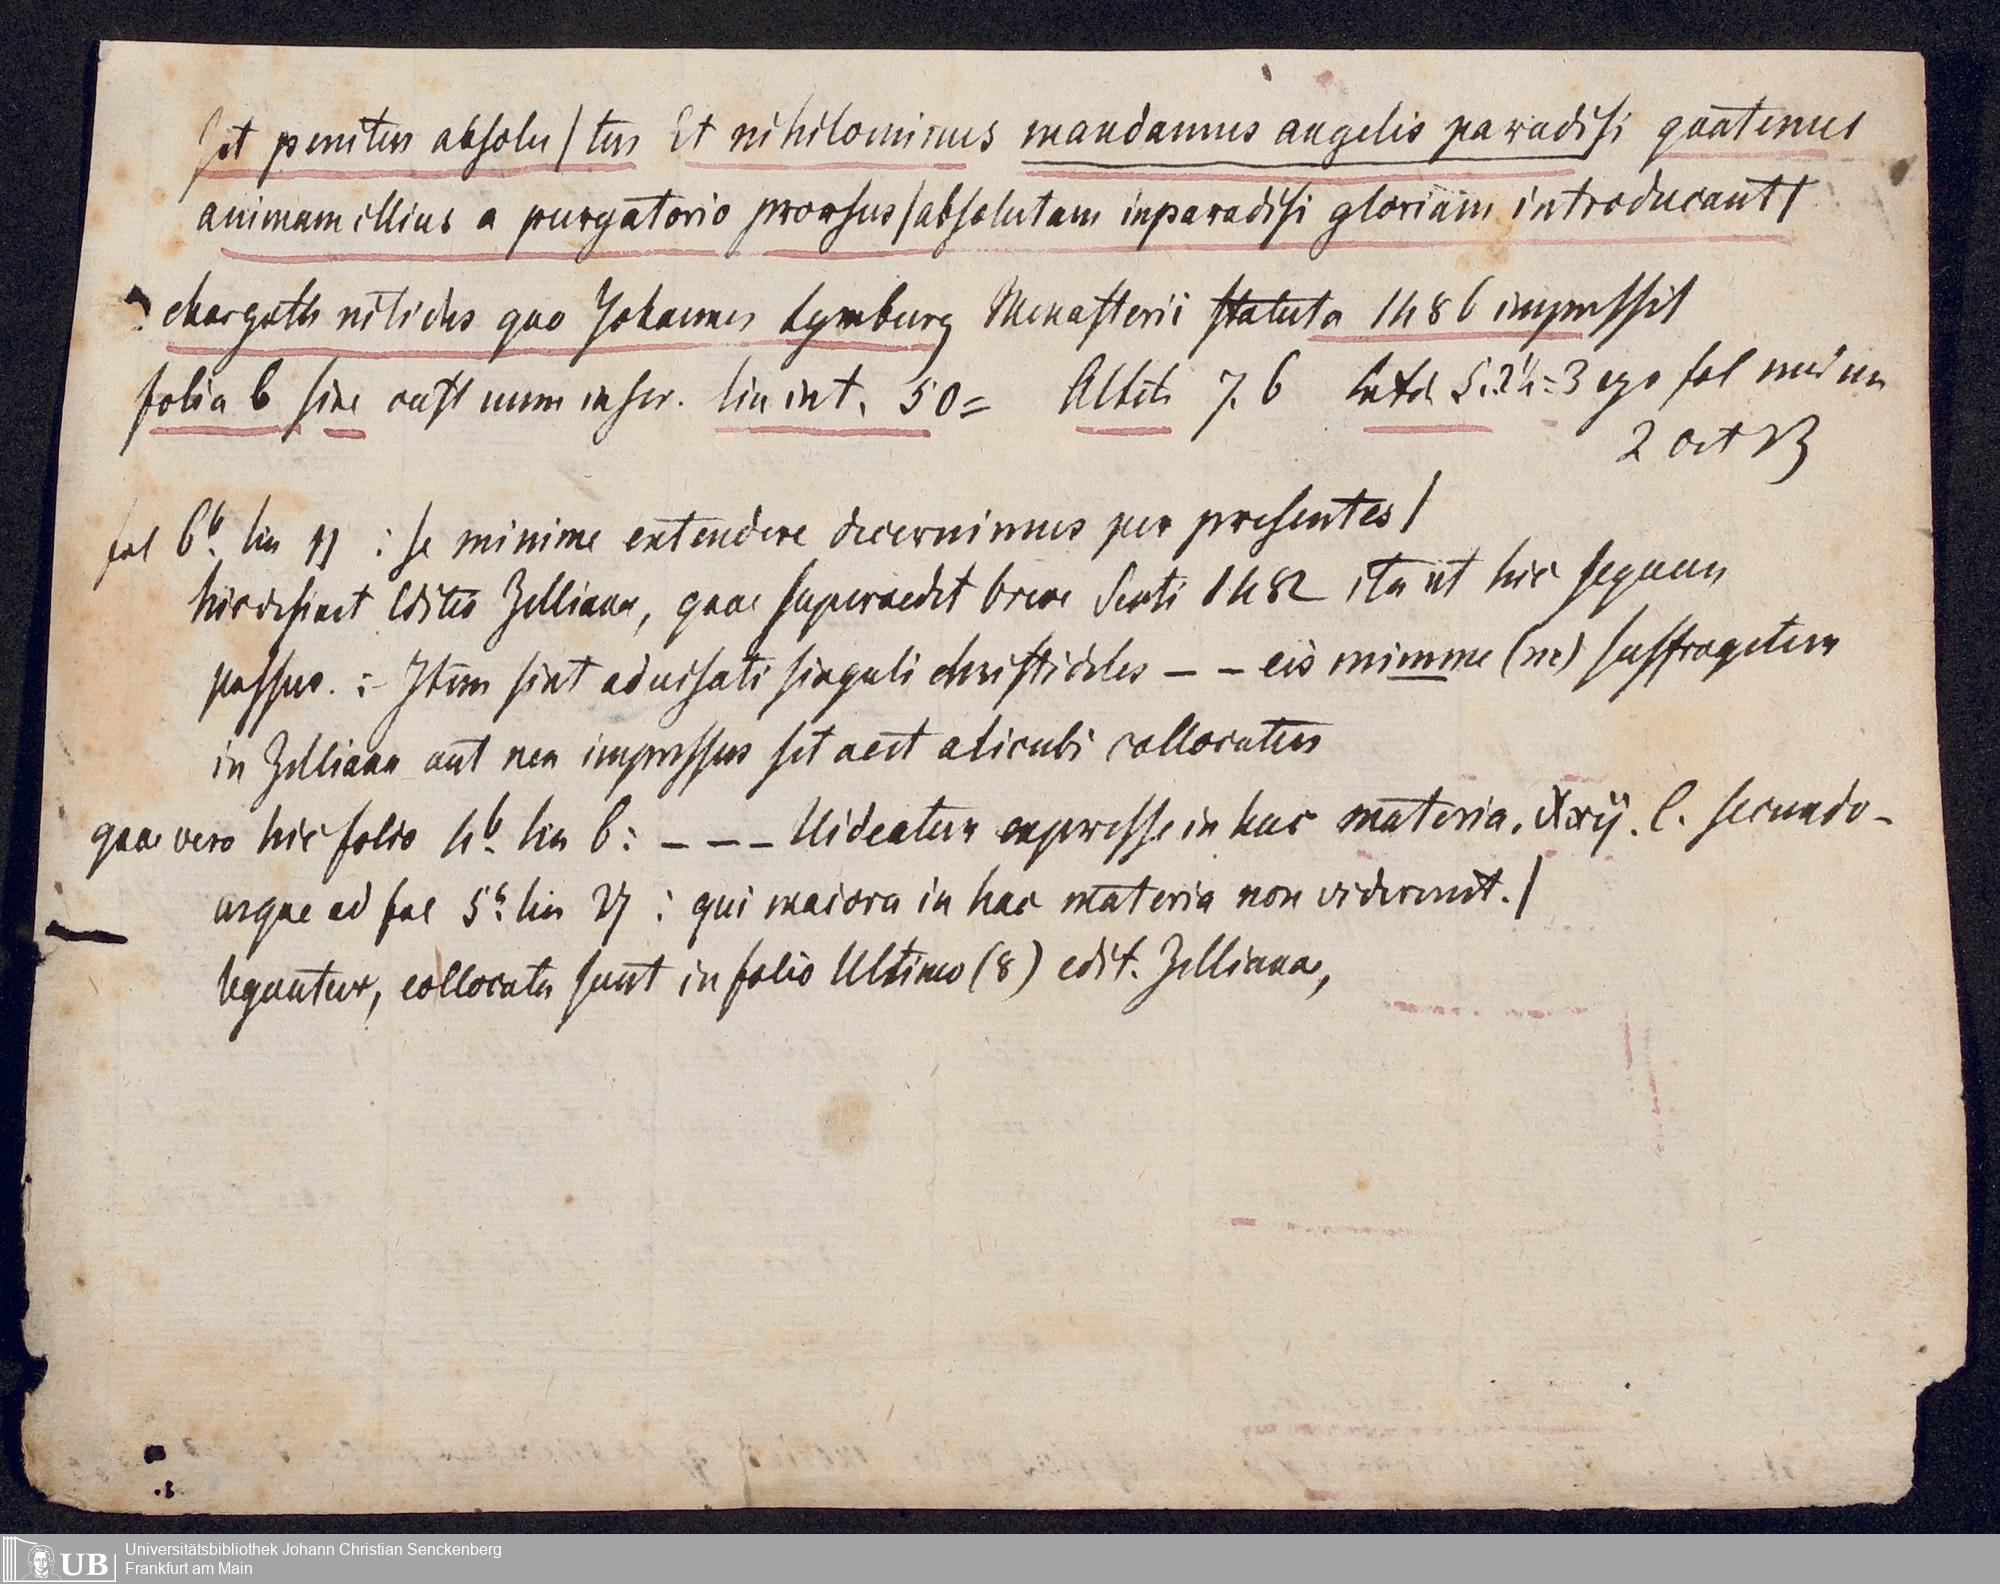 sit penitus absolu/tus Et nihilominus mandamus angelis paradisi quatenus
animam illius a purgatorio prorsus/absolutam inparadisi gloriam introducant/
nitidus quo Johannes Lymburg Monasterii statuta 1486 impressit
folia 6 sine cust num inscr. lin int. 50= Altit 7.6 Latit 5. = 3 ego fol
2 oct
fol 6b. lin : se minime extendere decernimus per presentes/
hic desinit Editio Zelliana, quae supersedit breve Sexti 1482 ita ut hic sequens
passus. :- Item sint aduisati singuli christifideles - - eis mimme (ne) suffragetur
in Zelliana aut non impressus sit aut alicubi collocatus
quae vero hic folio 4b. lin 6: - - - Uideatur expresse in hac materia. xxij. C. secundo -
usque ad fol 5 lin 27 : qui maiora in hac materia non viderunt./
leguntur, collocata sunt in folio Ultimo (8) edit. Zellianae,
UB Universitätsbibliothek Johann Christian Senckenberg
Frankfurt am Main